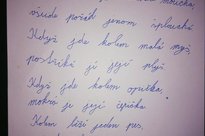 všude pořád jenom
Když jde kolem malá myš,
postříká jí její plyš.
Když jde kolem opička,
mokrá je její čepička.
Kolem běží jeden pes,